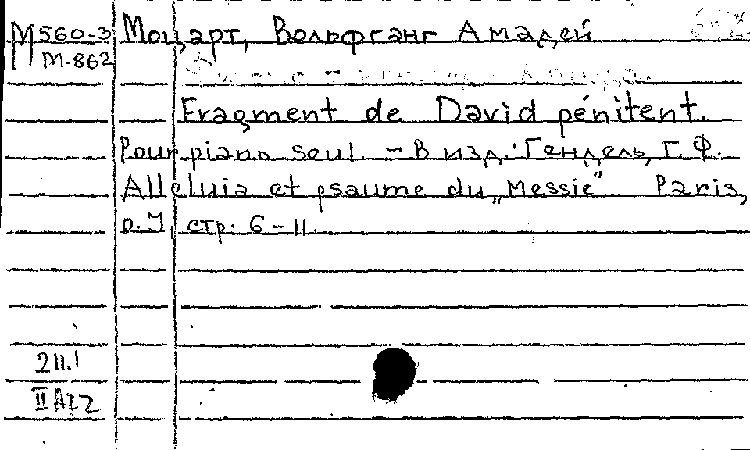 М560-3 Моцарт, Вольфганг Амадей
М-862
Fragment de David pénitent.
Pour piano seul. - В изд.: Гендель, Г. Ф.
Alleluia et psaume du „Messie“. Paris,
стр. 6-11.
2п.1